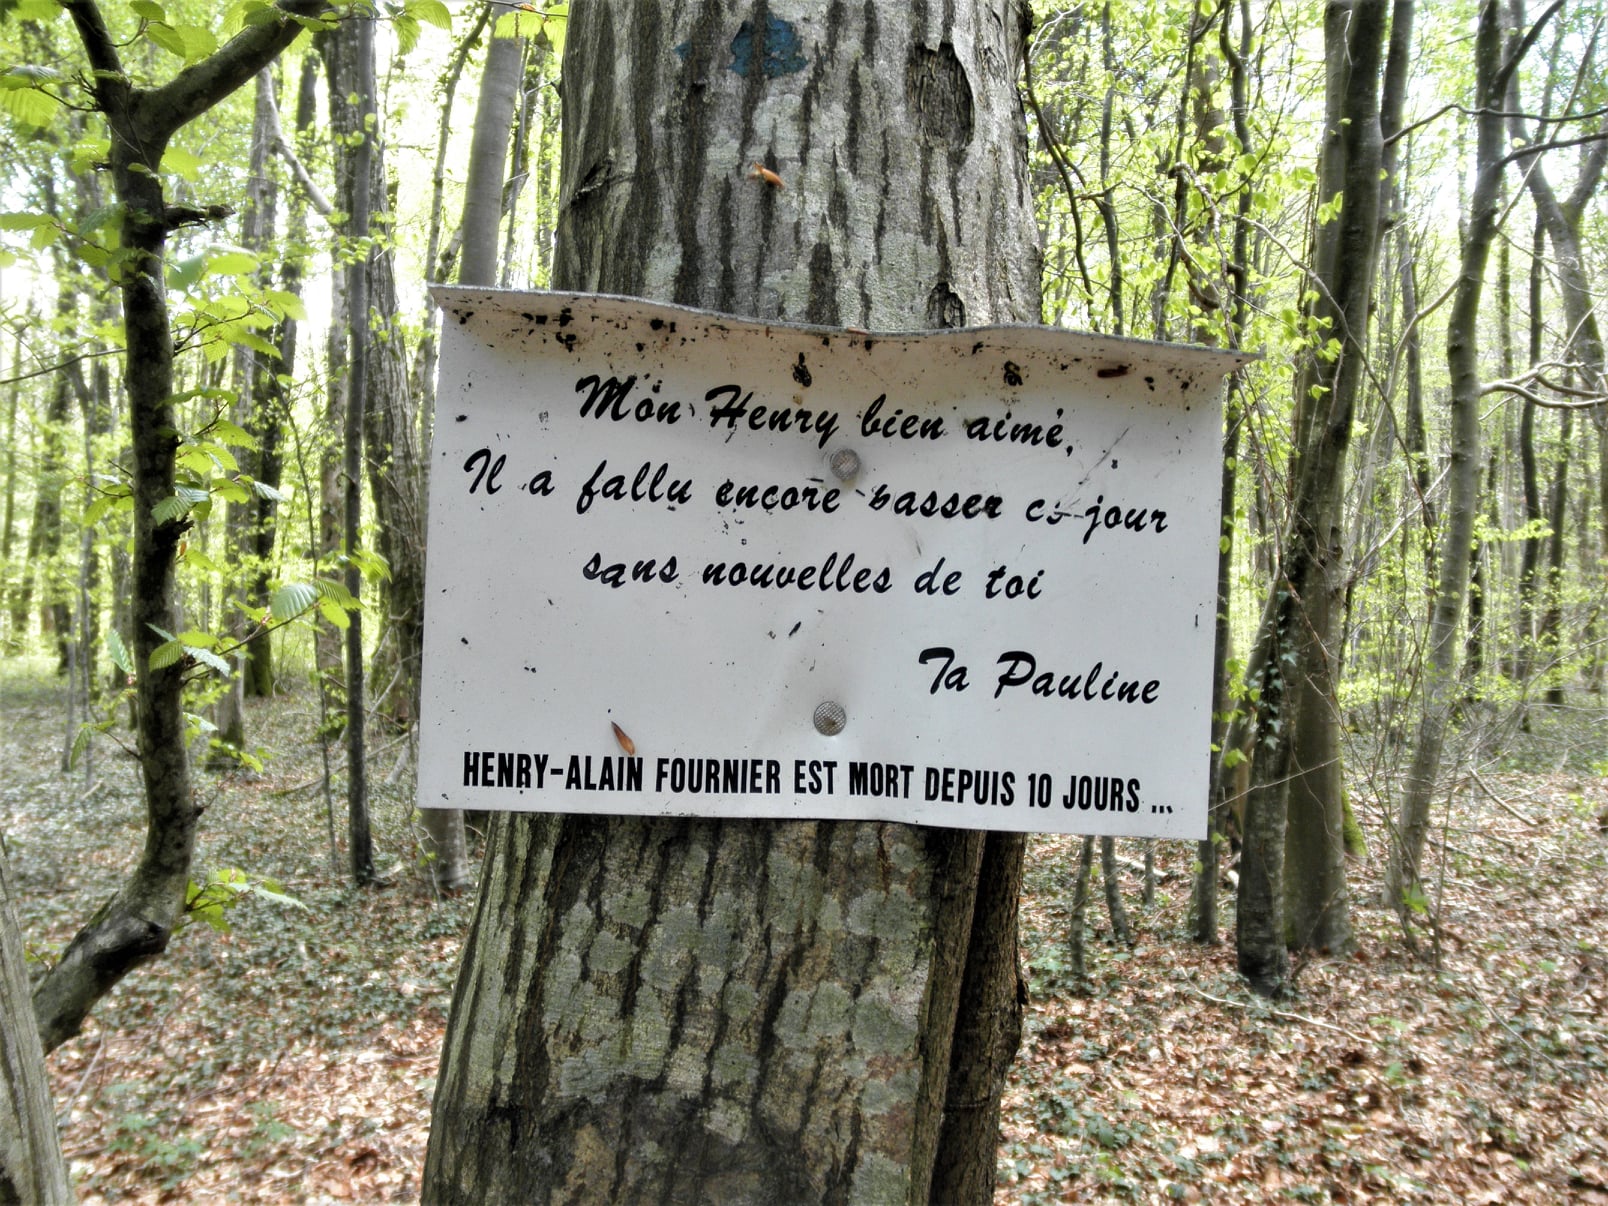 Mon Henry bien aimé,
Il a fallu encore passer ce jour
sans nouvelles de toi
Ta Pauline
HENRY-ALAIN FOURNIER EST MORT DEPUIS 10 JOURS ...